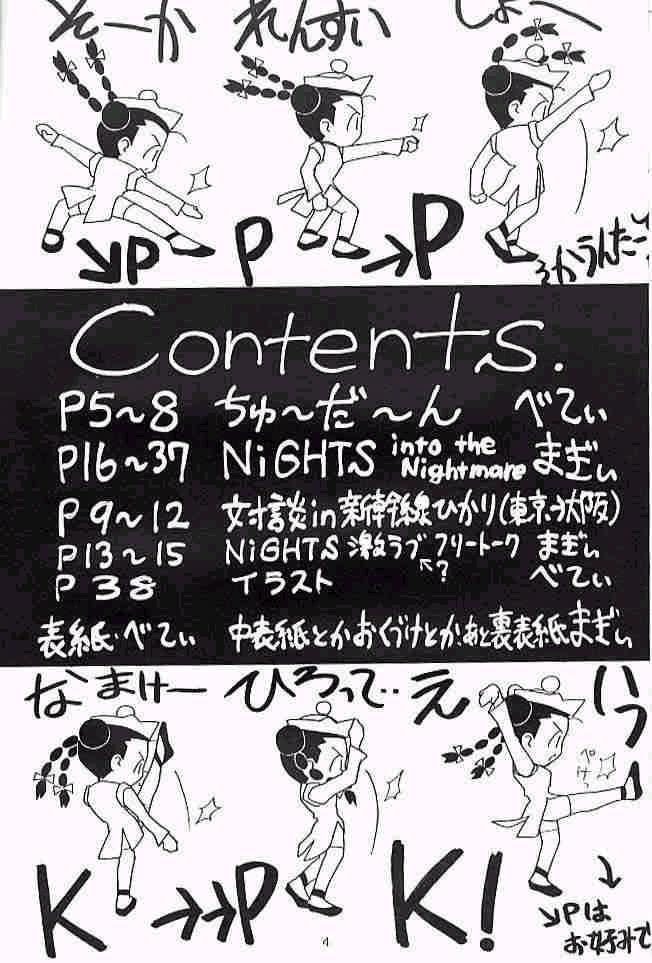 そーか れんすい しょー
↘P P →P
そかうんたーン
Contents.
P5〜8 ちゅ〜だ〜ん べてぃ
P16〜37 NiGHTS into the Nightmare まぎぃ
P9〜12 対談in新幹線ひかり(東京→大阪)
P13〜15 NiGHTS 激ラブ フリートーク まぎぃ
↖?
P38 イラスト べてぃ
表紙・べてぃ 中表紙とかおくづけとか、あと裏表紙まぎぃ
なまけー ひろって‥ え いっ
ぺけっ
K →→P K!
↘Pは
お好みで
4